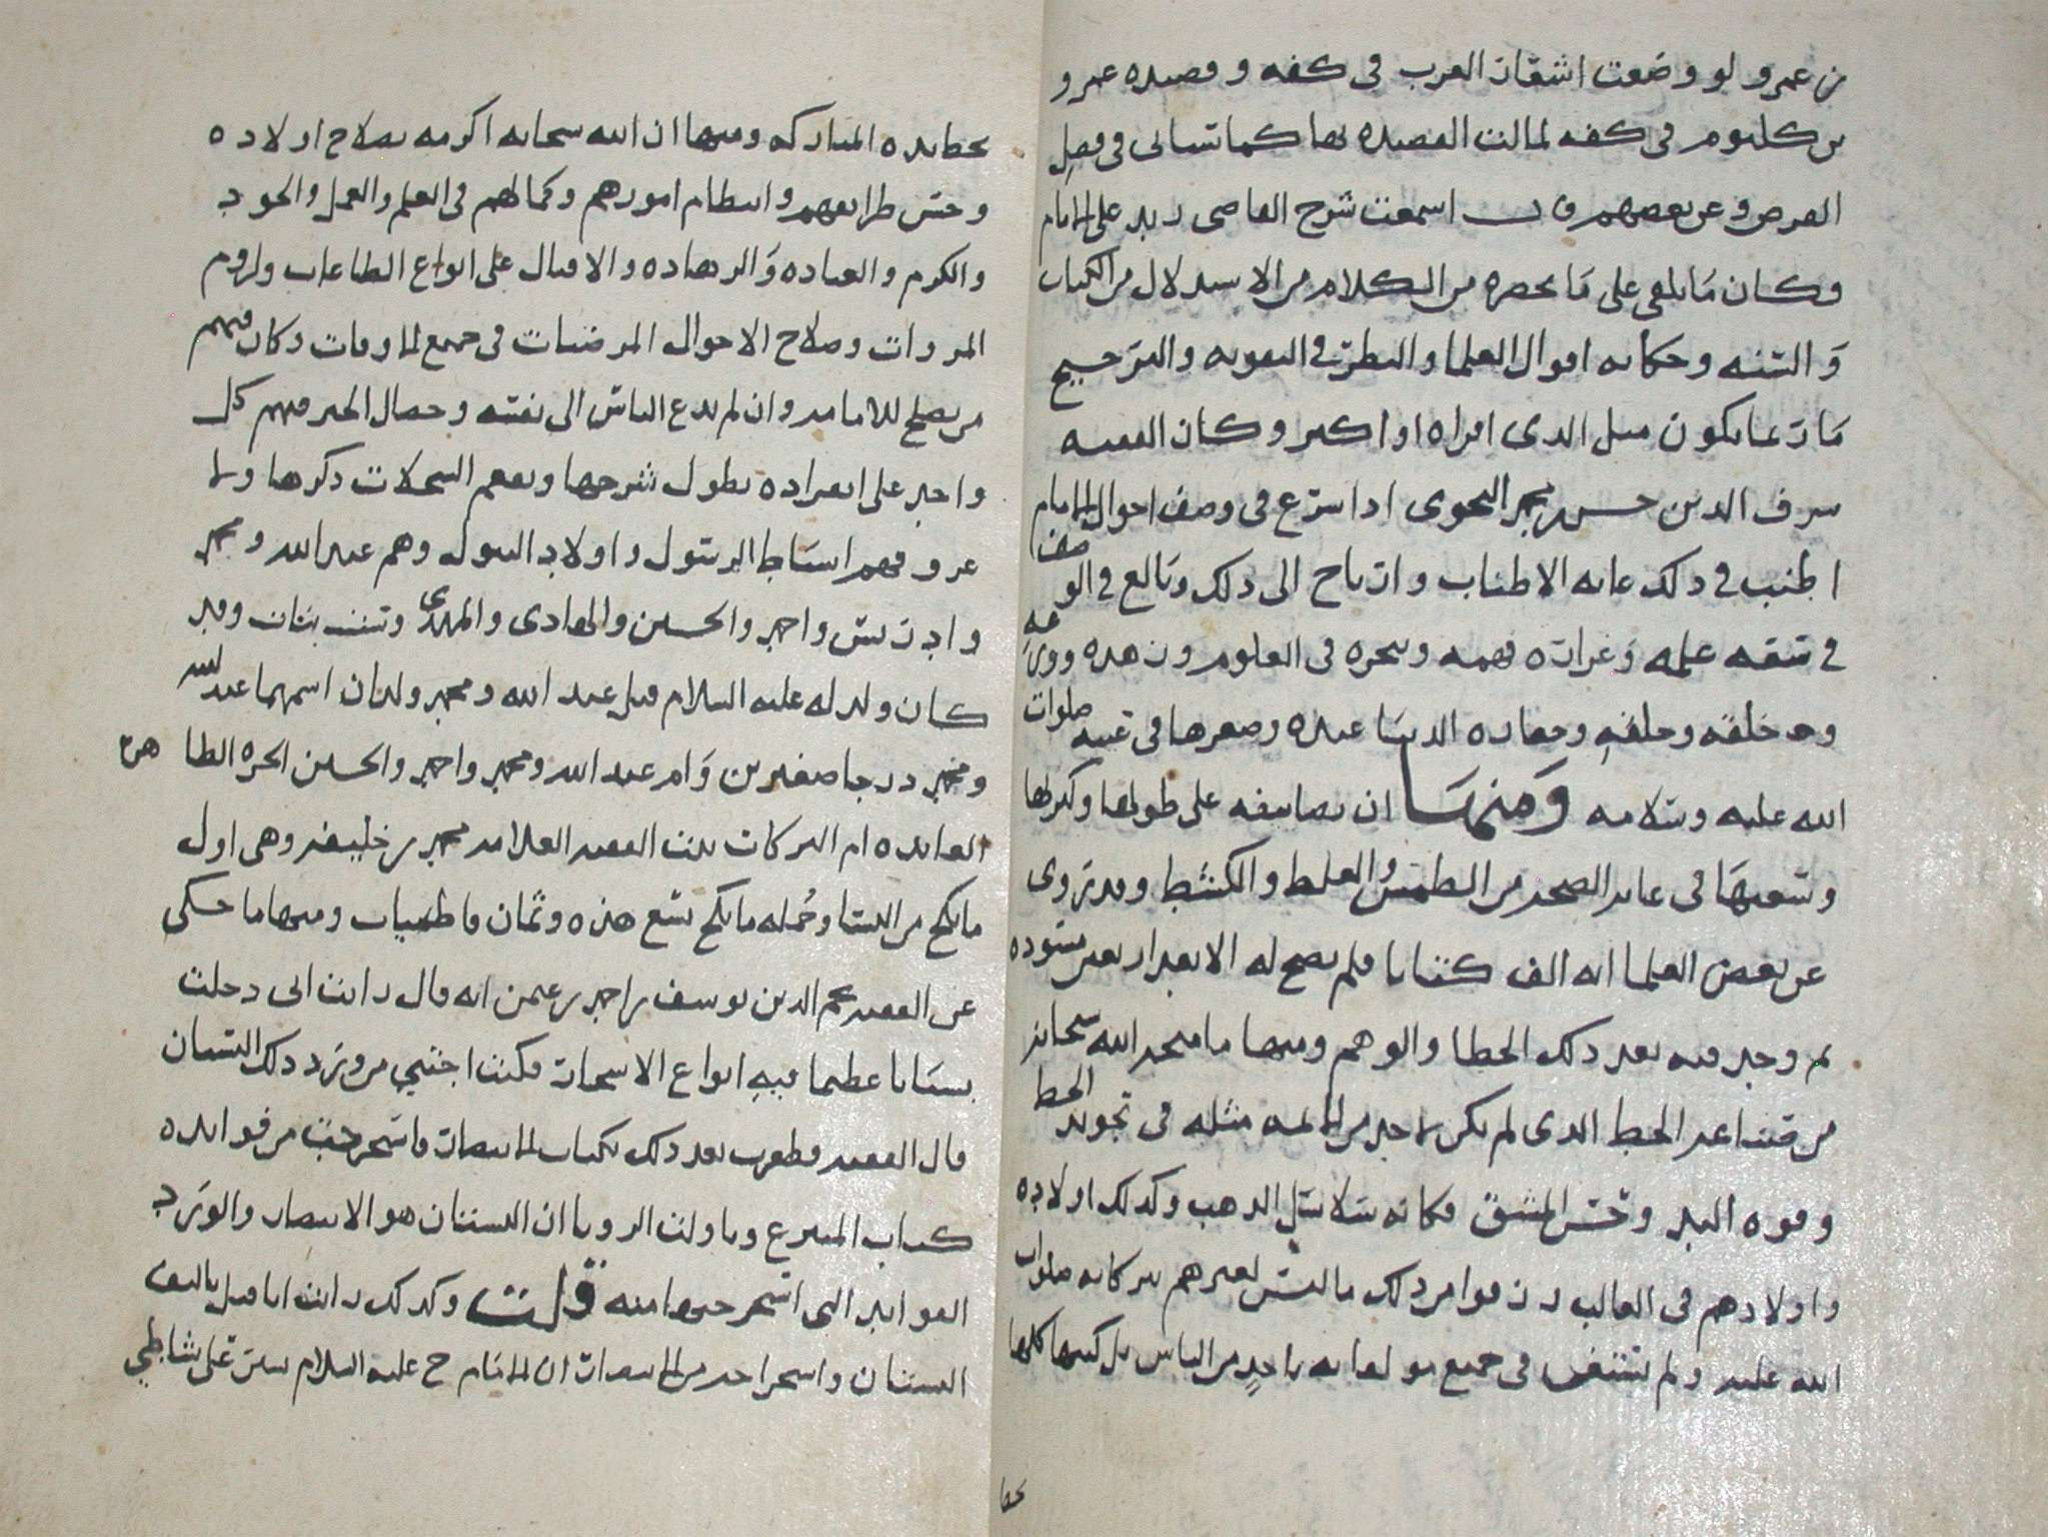 من عمرو لو وضعت اشعار العرب في كفه وقصيده عمرو
بن كلثوم في كفه لمالت القصيده بها كما سياتي في فصل
القرض وعن بعضهم قال اسمعت شرح القاضي زيد على الامام
وكان ما يلقي على ما يحضره من الكلام من الاستدلال من الكتاب
والسنه وحكايه اقوال العلما والنظر في التقويه والترجيح
ما ربما يكون مثل الذي اقراه او اكثر وكان الفقيه
شرف الدين حسن بن محمد النحوي اذا شرع في وصف احوال الامام
اطنب في ذلك غايه الاطناب وارتاح الى ذلك وبالغ في الوصف
في سعه علمه وغزاره فهمه وتبحره في العلوم وزهده وورعه
وحسن خلقه وخلقه وحقاره الدنيا عنده وصغرها في عينه صلوات
الله عليه وسلامه ومنها ان تصانيفه على طولها وكبرها
وسعتها في غايه الصحه من الطمس والغلط والكشط وقد روي
عن بعض العلما انه الف كتابا فلم يصح له الا بعد ان بعض مسوده
ثم وجد فيه بعد ذلك الخطا والوهم ومنها ما منحه الله سبحانه
من قساعد الخط الذي لم يكن لاحد من الائمه مثله في تجويد الخط
وقوه اليد وحسن المشق فكانه سلاسل الذهب وكذلك اولاده
واولادهم في الغالب رزقوا من ذلك ما ليس لغيرهم ببركاته صلوات
الله عليه ولم يستعن في جميع مولفاته باحد من الناس بل كتبها كلها
بخطا
بخط يده المباركه ومنها ان الله سبحانه اكرمه بصلاح اولاده
وحسن طرايقهم وانتظام امورهم وكمالهم في العلم والعمل والجود
والكرم والعباده والزهاده والاقبال على انواع الطاعات ولزوم
المروات وصلاح الاحوال المرضيات في جميع الاوقات وكان فيهم
من يصلح للامامه وان لم يدع الناس الى نفسه وخصال الخير فيهم كل
واحد على انفراده يطول شرحها ويفعم السجلات ذكرها ولا
غرو فهم اسباط الرسول واولاد البتول وهم عبد الله ومحمد
وادريس واحمد والحسين والهادي والمهدي وست بنات وقد
كان ولد له عليه السلام قبل عبد الله ومحمد ولدان اسمهما عبد الله
ومحمد درجا صغيرين وام عبد الله ومحمد واحمد والحسين الحره الطاهره
العابده ام البركات بنت الفقيه العلامه محمد بن خليفه وهي اول
ما نكح من النسا وجمله ما نكح تسع هذه وثمان فاطميات ومنها ما حكي
عن الفقيه نجم الدين يوسف بن احمد بن عثمن انه قال رايت اني دخلت
بستانا عظيما فيه انواع الاشجار فكنت اجتني من ورد ذلك البستان
قال الفقيه فظفرت بعد ذلك بكتاب الانتصار فاستخرجت من فوايده
كتاب المنتزع وناولت الرويا ان البستان هو الانتصار والورد
الفوايد التي استخرجها منه قلت وكذلك رايت انا قبل تاليف
البستان واستخراجه من الانتصار ان الامام ح عليه السلام يسير على شاطي